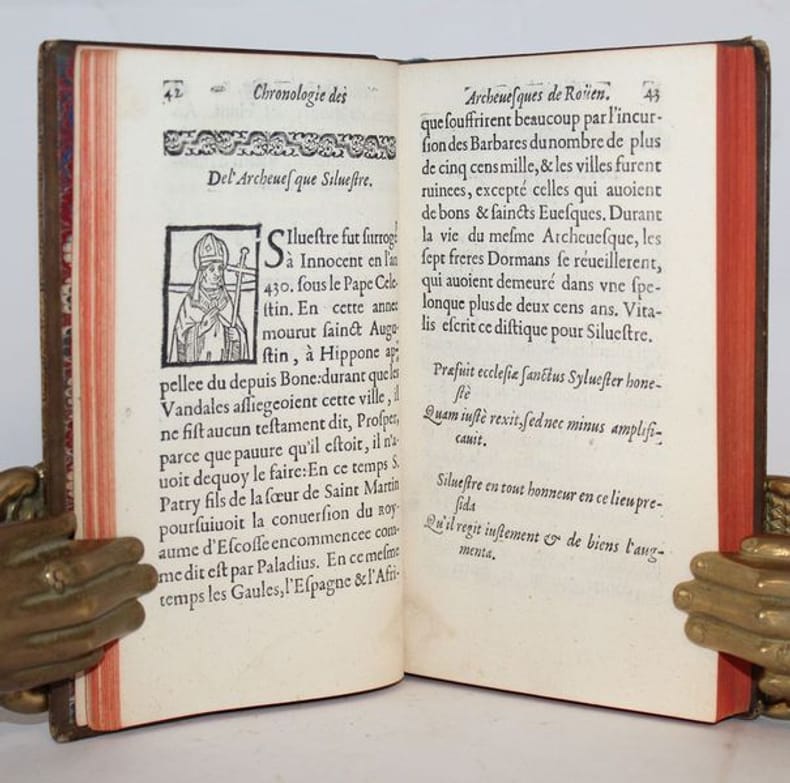 42 Chronologie des
De l'Archeueſque Silueſtre.
SIlueſtre fut ſurrogé
à Innocent en l'an
430. ſous le Pape Cele-
ſtin. En cette annee
mourut ſainct Augu-
ſtin, à Hippone ap-
pellee du depuis Bone: durant que les
Vandales aſſiegeoient cette ville, il
ne fiſt aucun teſtament dit, Proſper,
parce que pauure qu'il eſtoit, il n'a-
uoit dequoy le faire: En ce temps S.
Patry fils de la ſœur de Saint Martin
pourſuiuoit la conuerſion du roy-
aume d'Eſcoſſe encommencee com-
me dit eſt par Paladius. En ce meſme
temps les Gaules, l'Eſpagne & l'Afri-
Archeueſques de Roüen. 43
que ſouffrirent beaucoup par l'incur-
ſion des Barbares du nombre de plus
de cinq cens mille, & les villes furent
ruinees, excepté celles qui auoient
de bons & ſaincts Eueſques. Durant
la vie du meſme Archeueſque, les
ſept freres Dormans ſe réueillerent,
qui auoient demeuré dans vne ſpe-
lonque plus de deux cens ans. Vita-
lis eſcrit ce diſtique pour Silueſtre.
Præfuit eccleſiæ ſanctus Sylueſter hone-
ſtè
Quam iuſtè rexit, ſed nec minus amplifi-
cauit.
Silueſtre en tout honneur en ce lieu pre-
ſida
Qu'il regit iuſtement & de biens l'aug-
menta.